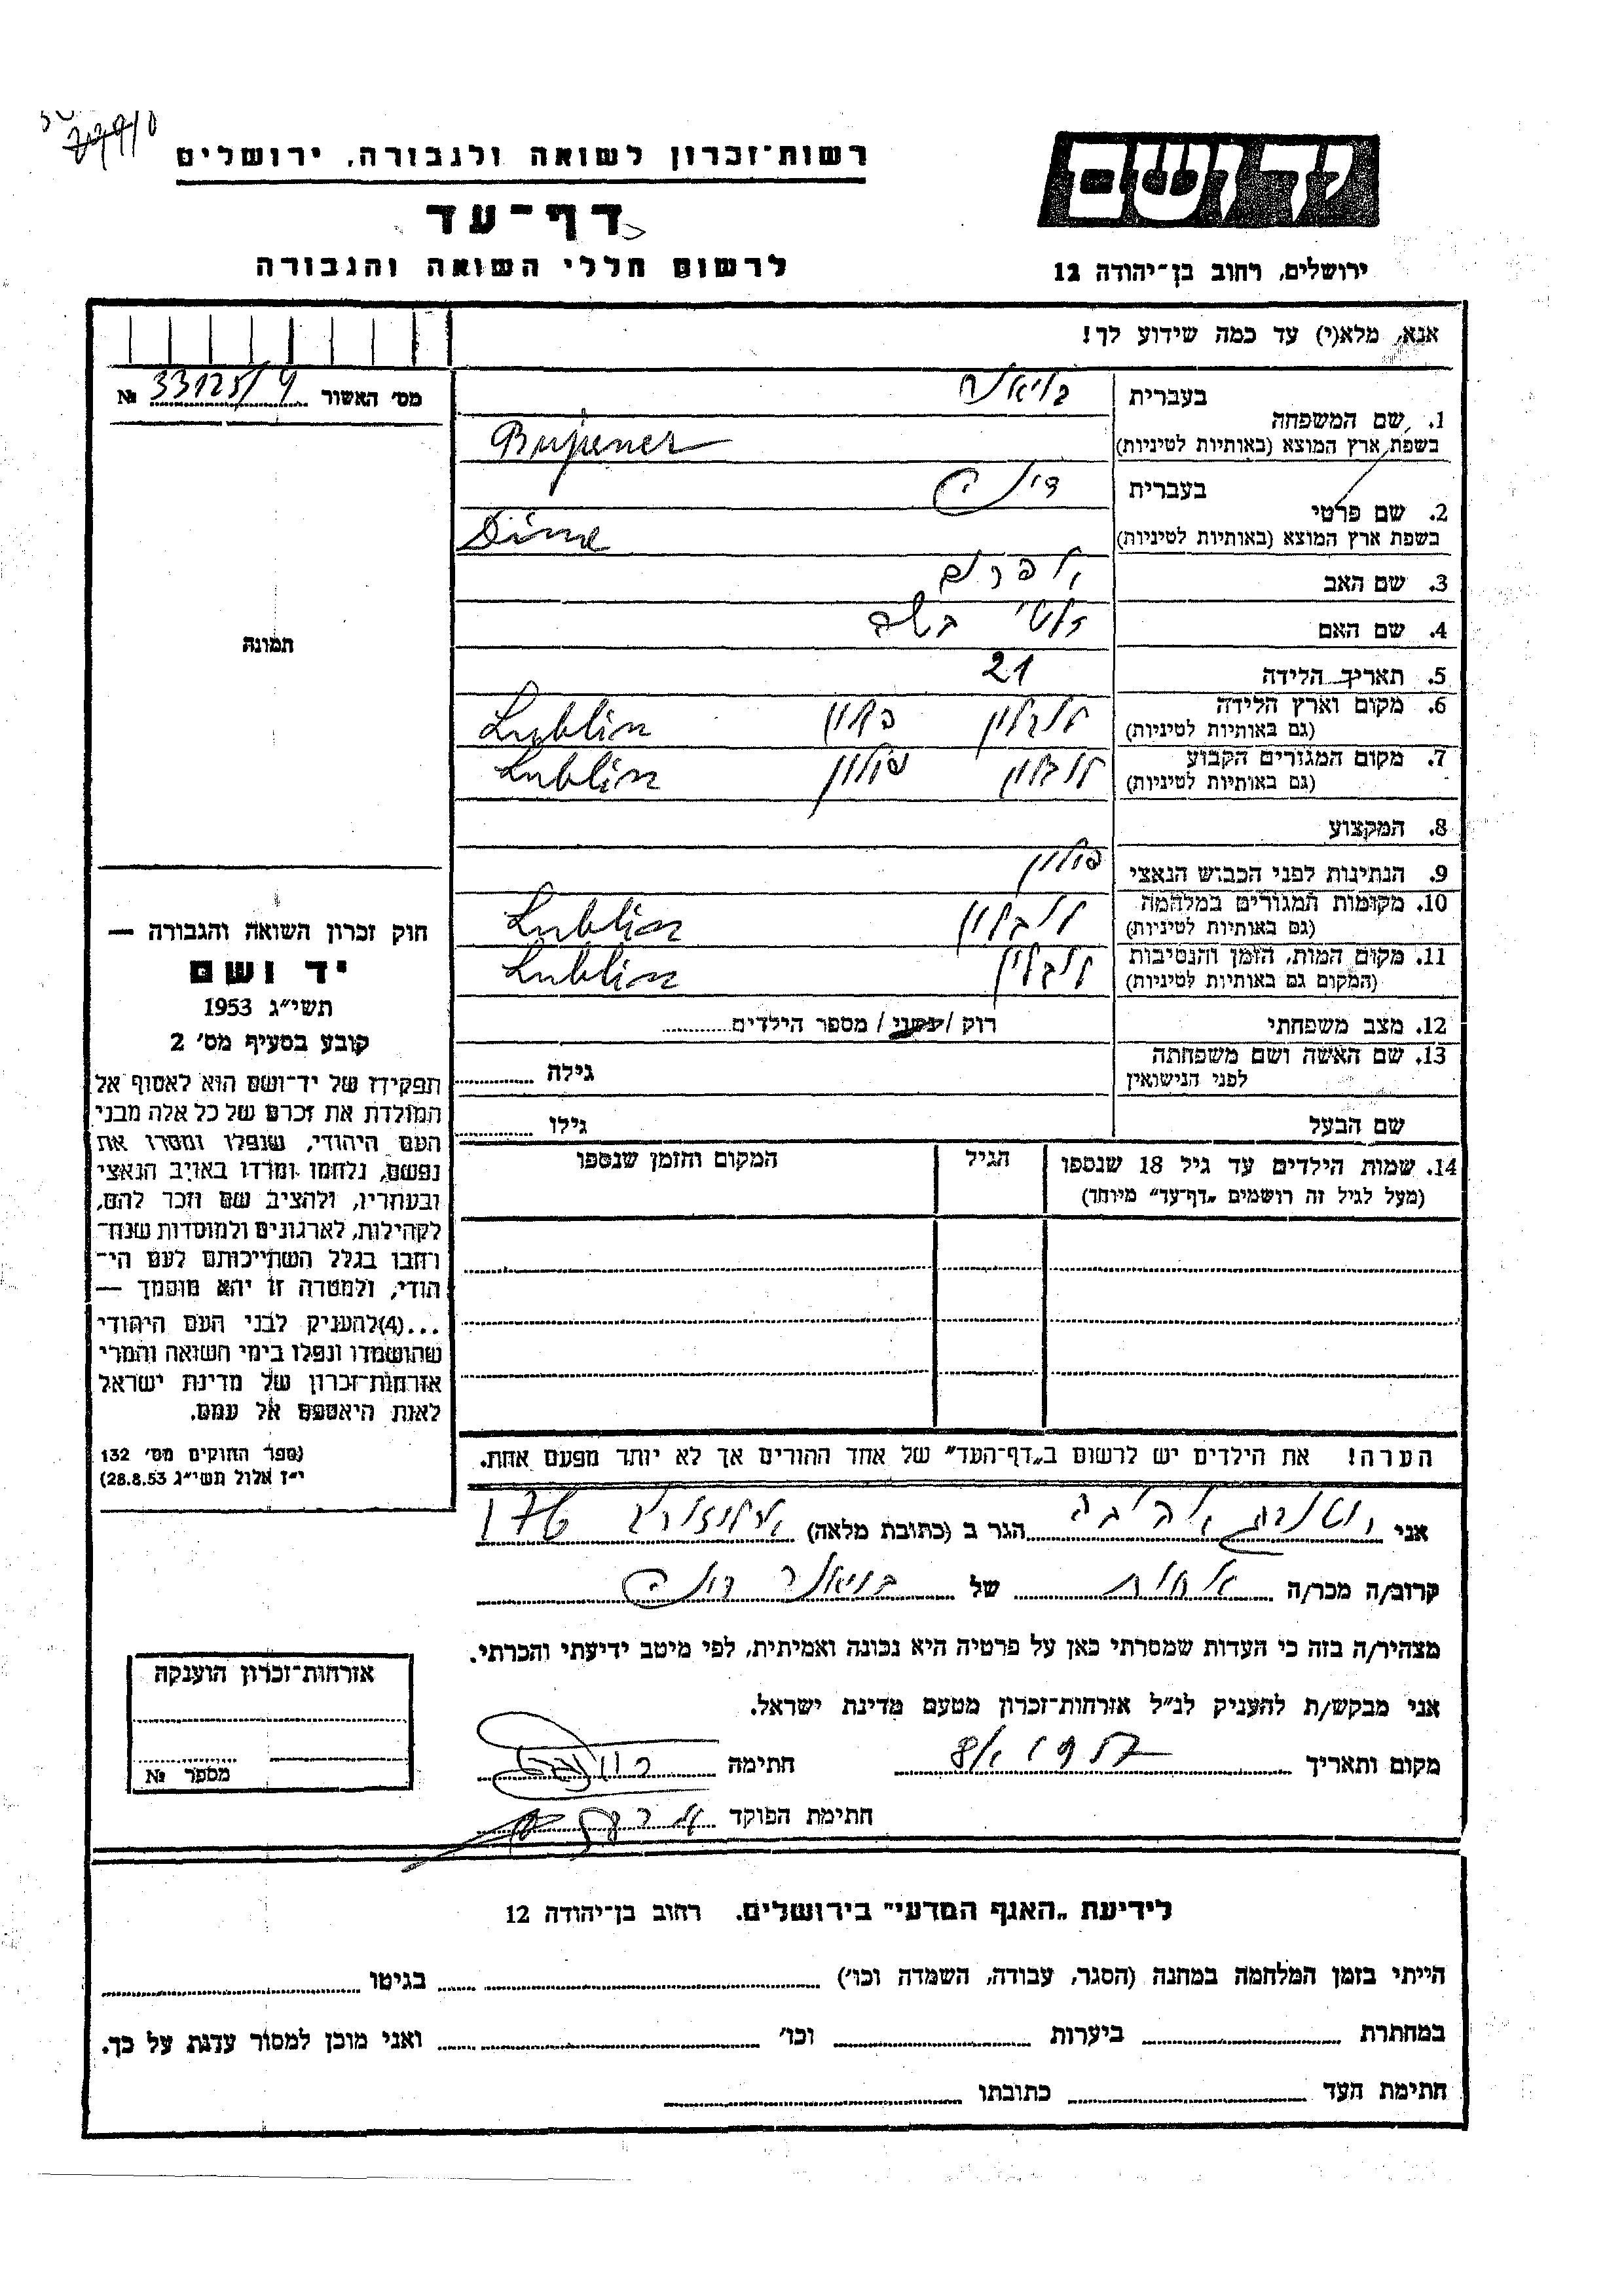 רשות־זכרון לשואה ולגבורה, ירושלים
יד ושם
דף־עד
לרשום חללי השואה והגבורה
ירושלים, רחוב בן־יהודה 12
אנא, מלא(י) עד כמה שידוע לך!
מס׳ האשור № 33125/9
1. שם המשפחה
בעברית
בשפת ארץ המוצא (באותיות לטיניות) Bujener
2. שם פרטי
בעברית דינה
בשפת ארץ המוצא (באותיות לטיניות)
3. שם האב אפרים
4. שם האם
5. תאריך הלידה 21
6. מקום וארץ הלידה לובלין פולין Lublin
(גם באותיות לטיניות)
7. מקום המגורים הקבוע לובלין פולין Lublin
(גם באותיות לטיניות)
8. המקצוע
9. הנתינות לפני הכבוש הנאצי פולין
10. מקומות המגורים במלחמה לובלין Lublin
(גם באותיות לטיניות)
11. מקום המות, הזמן והנסיבות לובלין Lublin
(המקום גם באותיות לטיניות)
12. מצב משפחתי רוק / נשוי / מספר הילדים
13. שם האשה ושם משפחתה
לפני הנישואין גילה
שם הבעל גילו
14. שמות הילדים עד גיל 18 שנספו הגיל המקום והזמן שנספו
(מעל לגיל זה רושמים „דף־עד״ מיוחד)
תמונה
חוק זכרון השואה והגבורה —
יד ושם
תשי״ג 1953
קובע בסעיף מס׳ 2
תפקידו של יד־ושם הוא לאסוף אל
המולדת את זכרם של כל אלה מבני
העם היהודי, שנפלו ומסרו את
נפשם, נלחמו ומרדו באויב הנאצי
ובעוזריו, ולהציב שם וזכר להם,
לקהילות, לארגונים ולמוסדות שנח־
רחבו בגלל השתייכותם לעם הי־
הודי, ולמטרה זו יהא מוסמך —
...(4)להעניק לבני העם היהודי
שהושמדו ונפלו בימי השואה והמרי
אזרחות־זכרון של מדינת ישראל
לאות היאספם אל עמם.
(ספר החוקים מס׳ 132
י״ז אלול תשי״ג 28.8.53)
הערה! את הילדים יש לרשום ב„דף־העד״ של אחד ההורים אך לא יותר מפעם אחת.
אני הגר ב (כתובת מלאה)
קרוב/ה מכר/ה אחות של דינה
מצהיר/ה בזה כי העדות שמסרתי כאן על פרטיה היא נכונה ואמיתית, לפי מיטב ידיעתי והכרתי.
אני מבקש/ת להעניק לנ״ל אזרחות־זכרון מטעם מדינת ישראל.
מקום ותאריך חתימה
חתימת הפוקד
אזרחות־זכרון הוענקה
מספר №
לידיעת „האגף המדעי״ בירושלים. רחוב בן־יהודה 12
הייתי בזמן המלחמה במחנה (הסגר, עבודה, השמדה וכו׳) בגיטו
במחתרת ביערות וכו׳ ואני מוכן למסור עדות על כך.
חתימת העד כתובתו